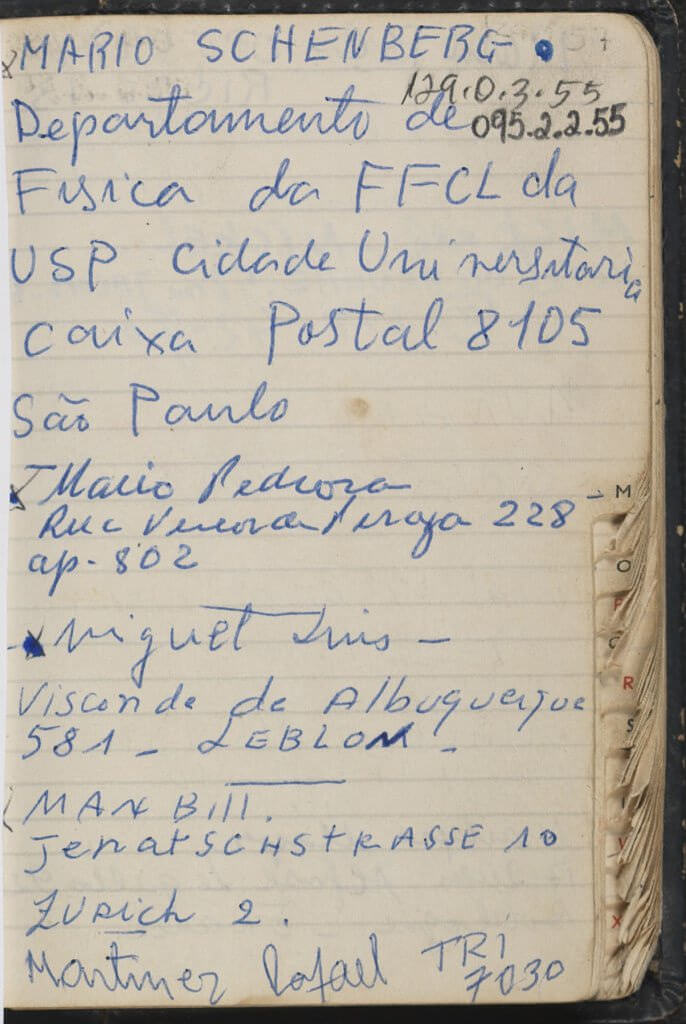 MARIO SCHENBERG.
129.0.3.55
Departamento de 095.2.2.55
Fisica da FFCL da
USP Cidade Universitaria
Caixa Postal 8105
São Paulo
Mario Pedrosa
Rua 228
ap. 802
Miguel Luis —
Visconde de Albuquerque
581 - LEBLON -
MAX BIll.
JenatSCHStRASSE 10
ZURich 2.
Martinez Rafael TRI
7030
M
O
P
R
S
X